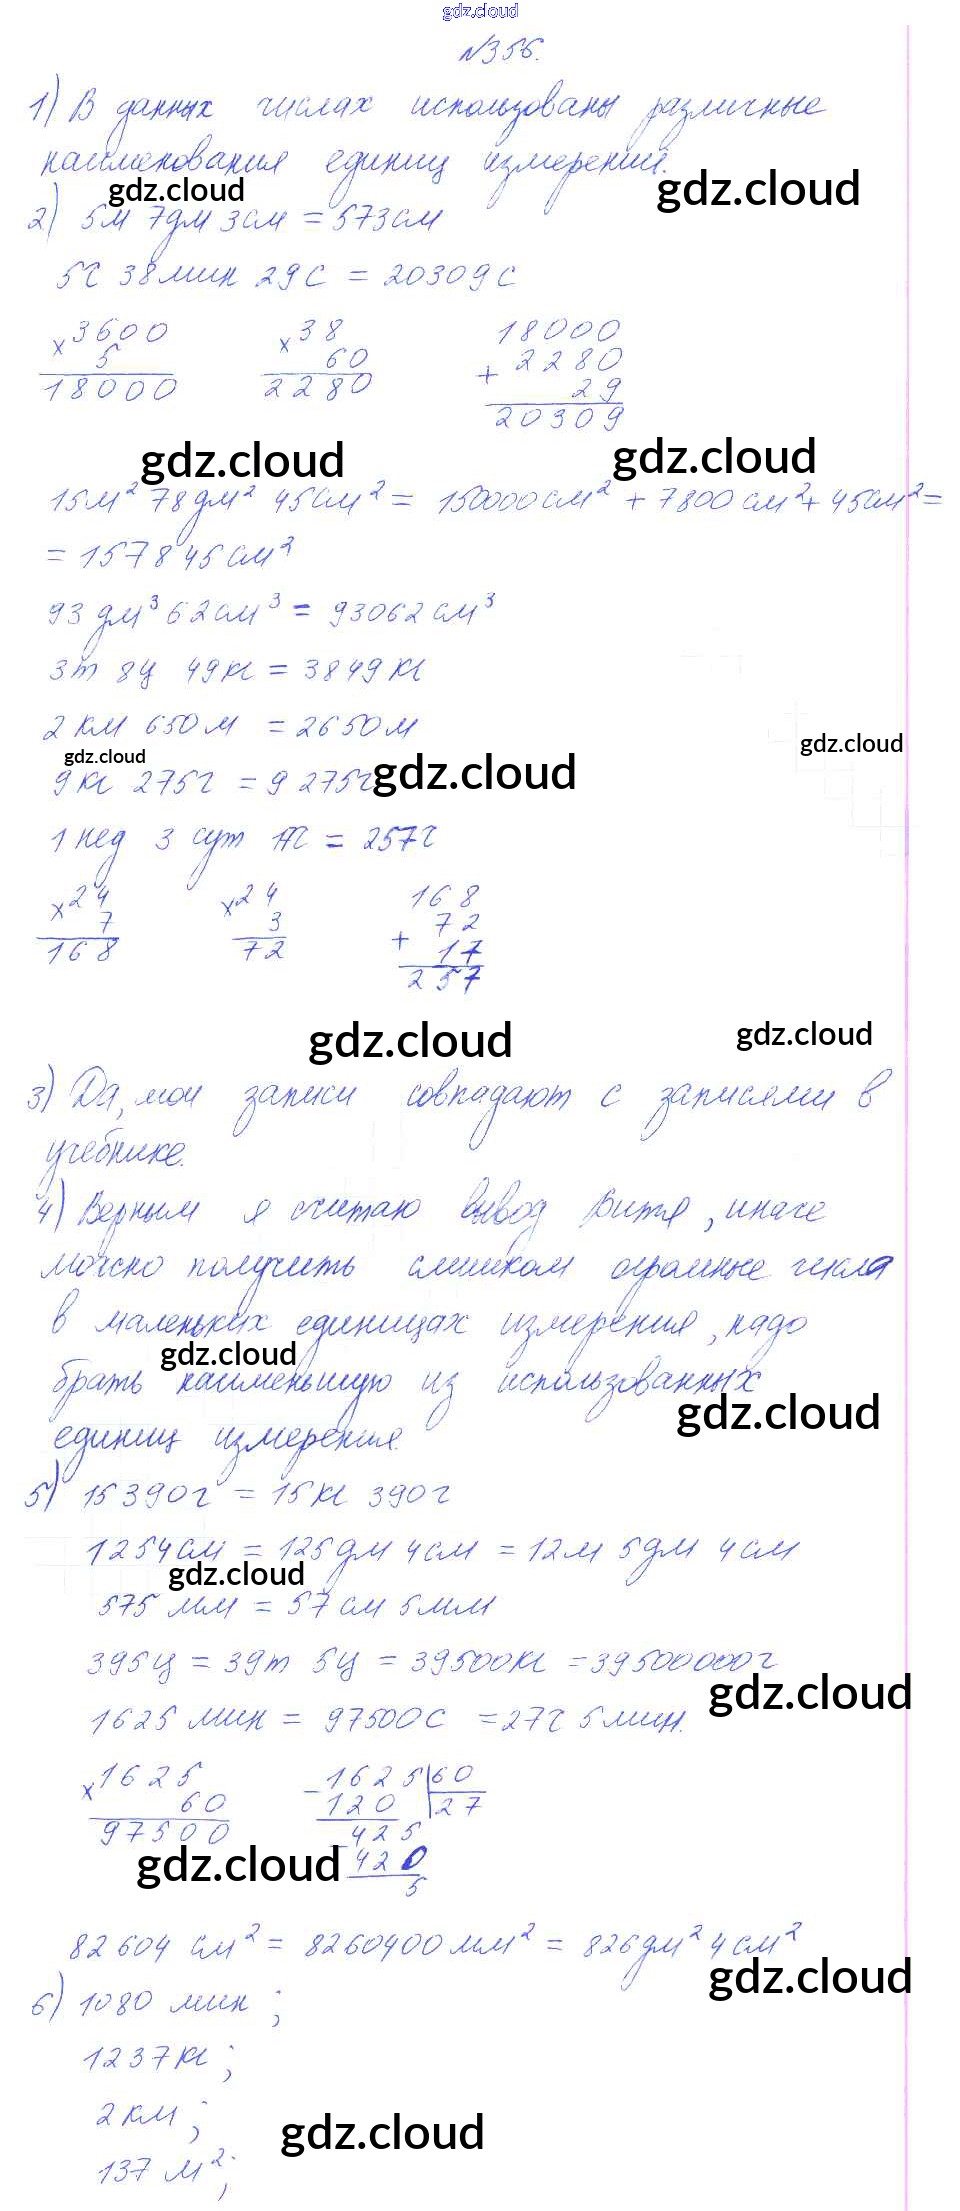 gdz.cloud
№356.
1) В данных числах использованы различные
наименования единиц измерений.
gdz.cloud
gdz.cloud
2) 5м 7дм 3см = 573см
5ч 38мин 29с = 20309с
× 3600 × 38 18000
5 60 + 2280
18000 2280 29
20309
gdz.cloud gdz.cloud
15м² 78дм² 45см² = 150000см² + 7800см² + 45см² =
= 157845см²
93дм³ 62см³ = 93062см³
3т 8ц 49кг = 3849кг
2км 650м = 2650м
gdz.cloud
gdz.cloud gdz.cloud
9кг 275г = 9275г
1 нед 3 сут 17ч = 257ч
× 24 × 24 168
7 3 72
168 72 + 17
257
gdz.cloud gdz.cloud
3) Да, мои записи совпадают с записями в
учебнике.
4) Верным я считаю вывод Витя, иначе
можно получить слишком огромные числа
в маленьких единицах измерения, надо
gdz.cloud
брать наименьшую из использованных
gdz.cloud
единиц измерения.
5) 15390г = 15кг 390г
1254см = 125дм 4см = 12м 5дм 4см
gdz.cloud
575мм = 57см 5мм
395ц = 39т 5ц = 39500кг = 39500000г
gdz.cloud
1625мин = 97500с = 27ч 5мин.
× 1625 - 1625 | 60
60 120 27
97500 425
gdz.cloud - 420
5
82604см² = 8260400мм² = 826дм² 4см²
gdz.cloud
6) 1080 мин;
1237кг;
2км;
gdz.cloud
137м²;